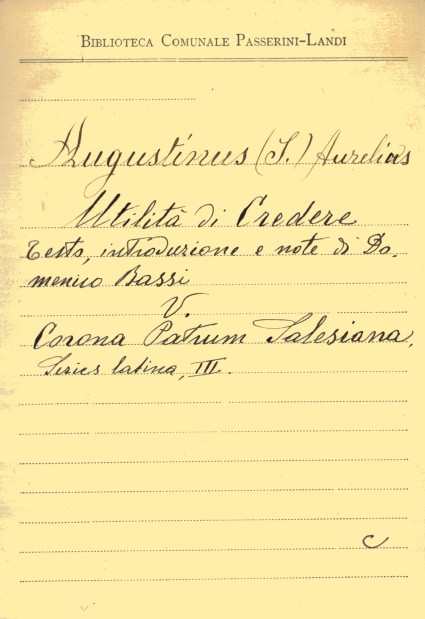 BIBLIOTECA COMUNALE PASSERINI-LANDI
Augustinus (S.) Aurelius
Utilità di Credere
Testo, introduzione e note di Do-
menico Bassi
V.
Corona Patrum Salesiana,
Series latina, III.
C